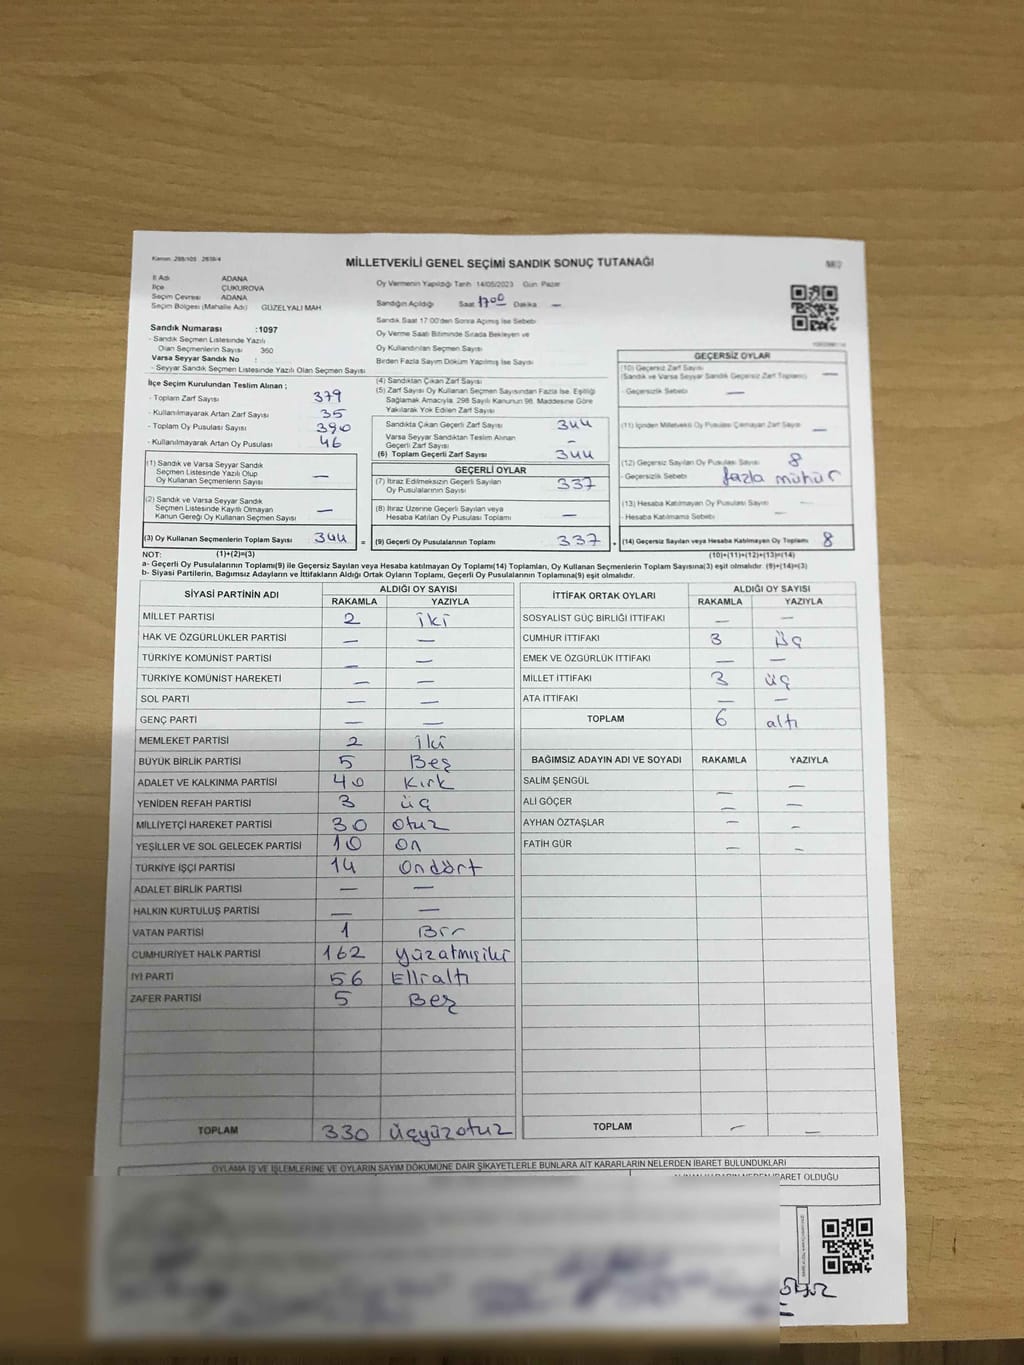 MİLLETVEKİLİ GENEL SEÇİMİ SANDIK SONUÇ TUTANAĞI
İl Adı ADANA
İlçe ÇUKUROVA
Seçim Çevresi ADANA
Seçim Bölgesi (Mahalle Adı) GÜZELYALI MAH
Sandık Numarası :1097
- Sandık Seçmen Listesinde Yazılı
Olan Seçmenlerin Sayısı 360
Varsa Seyyar Sandık No :
- Seyyar Sandık Seçmen Listesinde Yazılı Olan Seçmen Sayısı
İlçe Seçim Kurulundan Teslim Alınan ;
- Toplam Zarf Sayısı 379
- Kullanılmayarak Artan Zarf Sayısı 35
- Toplam Oy Pusulası Sayısı 390
- Kullanılmayarak Artan Oy Pusulası 46
(1) Sandık ve Varsa Seyyar Sandık
Seçmen Listesinde Yazılı Olup
Oy Kullanan Seçmenlerin Sayısı —
(2) Sandık ve Varsa Seyyar Sandık
Seçmen Listesinde Kayıtlı Olmayan
Kanun Gereği Oy Kullanan Seçmen Sayısı —
(3) Oy Kullanan Seçmenlerin Toplam Sayısı 344
Oy Vermenin Yapıldığı Tarih 14/05/2023 Gün Pazar
Sandığın Açıldığı Saat 17 00 Dakika —
Sandık Saat 17:00'den Sonra Açmış İse Sebebi
Oy Verme Saati Bitiminde Sırada Bekleyen ve
Oy Kullandırılan Seçmen Sayısı
Birden Fazla Sayım Döküm Yapılmış İse Sayısı
(4) Sandıktan Çıkan Zarf Sayısı
(5) Zarf Sayısı Oy Kullanan Seçmen Sayısından Fazla İse, Eşitliği
Sağlamak Amacıyla, 298 Sayılı Kanunun 98. Maddesine Göre
Yakılarak Yok Edilen Zarf Sayısı
Sandıkta Çıkan Geçerli Zarf Sayısı 344
Varsa Seyyar Sandıktan Teslim Alınan
Geçerli Zarf Sayısı —
(6) Toplam Geçerli Zarf Sayısı 344
GEÇERLİ OYLAR
(7) İtiraz Edilmeksizin Geçerli Sayılan
Oy Pusulalarının Sayısı 337
(8) İtiraz Üzerine Geçerli Sayılan veya
Hesaba Katılan Oy Pusulası Toplamı —
= (9) Geçerli Oy Pusulalarının Toplamı 337
GEÇERSİZ OYLAR
(10) Geçersiz Zarf Sayısı
(Sandık ve Varsa Seyyar Sandık Geçersiz Zarf Toplamı) —
- Geçersizlik Sebebi —
(11) İçinden Milletvekili Oy Pusulası Çıkmayan Zarf Sayısı —
(12) Geçersiz Sayılan Oy Pusulası Sayısı 8
- Geçersizlik Sebebi fazla mühür
(13) Hesaba Katılmayan Oy Pusulası Sayısı —
- Hesaba Katılmama Sebebi —
(14) Geçersiz Sayılan veya Hesaba Katılmayan Oy Toplamı 8
NOT: (1)+(2)=(3) (10)+(11)+(12)+(13)=(14)
a- Geçerli Oy Pusulalarının Toplamı(9) ile Geçersiz Sayılan veya Hesaba katılmayan Oy Toplamı(14) Toplamları, Oy Kullanan Seçmenlerin Toplam Sayısına(3) eşit olmalıdır. (9)+(14)=(3)
b- Siyasi Partilerin, Bağımsız Adayların ve İttifakların Aldığı Ortak Oyların Toplamı, Geçerli Oy Pusulalarının Toplamına(9) eşit olmalıdır.
SİYASİ PARTİNİN ADI ALDIĞI OY SAYISI
RAKAMLA YAZIYLA
MİLLET PARTİSİ 2 iki
HAK VE ÖZGÜRLÜKLER PARTİSİ — —
TÜRKİYE KOMÜNİST PARTİSİ — —
TÜRKİYE KOMÜNİST HAREKETİ — —
SOL PARTİ — —
GENÇ PARTİ — —
MEMLEKET PARTİSİ 2 iki
BÜYÜK BİRLİK PARTİSİ 5 Beş
ADALET VE KALKINMA PARTİSİ 40 Kırk
YENİDEN REFAH PARTİSİ 3 üç
MİLLİYETÇİ HAREKET PARTİSİ 30 otuz
YEŞİLLER VE SOL GELECEK PARTİSİ 10 on
TÜRKİYE İŞÇİ PARTİSİ 14 ondört
ADALET BİRLİK PARTİSİ — —
HALKIN KURTULUŞ PARTİSİ — —
VATAN PARTİSİ 1 Bir
CUMHURİYET HALK PARTİSİ 162 yüzatmışiki
İYİ PARTİ 56 Ellialtı
ZAFER PARTİSİ 5 Beş
TOPLAM 330 üçyüzotuz
İTTİFAK ORTAK OYLARI ALDIĞI OY SAYISI
RAKAMLA YAZIYLA
SOSYALİST GÜÇ BİRLİĞİ İTTİFAKI — —
CUMHUR İTTİFAKI 3 Üç
EMEK VE ÖZGÜRLÜK İTTİFAKI — —
MİLLET İTTİFAKI 3 üç
ATA İTTİFAKI — —
TOPLAM 6 altı
BAĞIMSIZ ADAYIN ADI VE SOYADI RAKAMLA YAZIYLA
SALİM ŞENGÜL — —
ALİ GÖÇER — —
AYHAN ÖZTAŞLAR — —
FATİH GÜR — —
TOPLAM — —
OYLAMA İŞ VE İŞLEMLERİNE VE OYLARIN SAYIM DÖKÜMÜNE DAİR ŞİKAYETLERLE BUNLARA AİT KARARLARIN NELERDEN İBARET BULUNDUKLARI
İBARET OLDUĞU